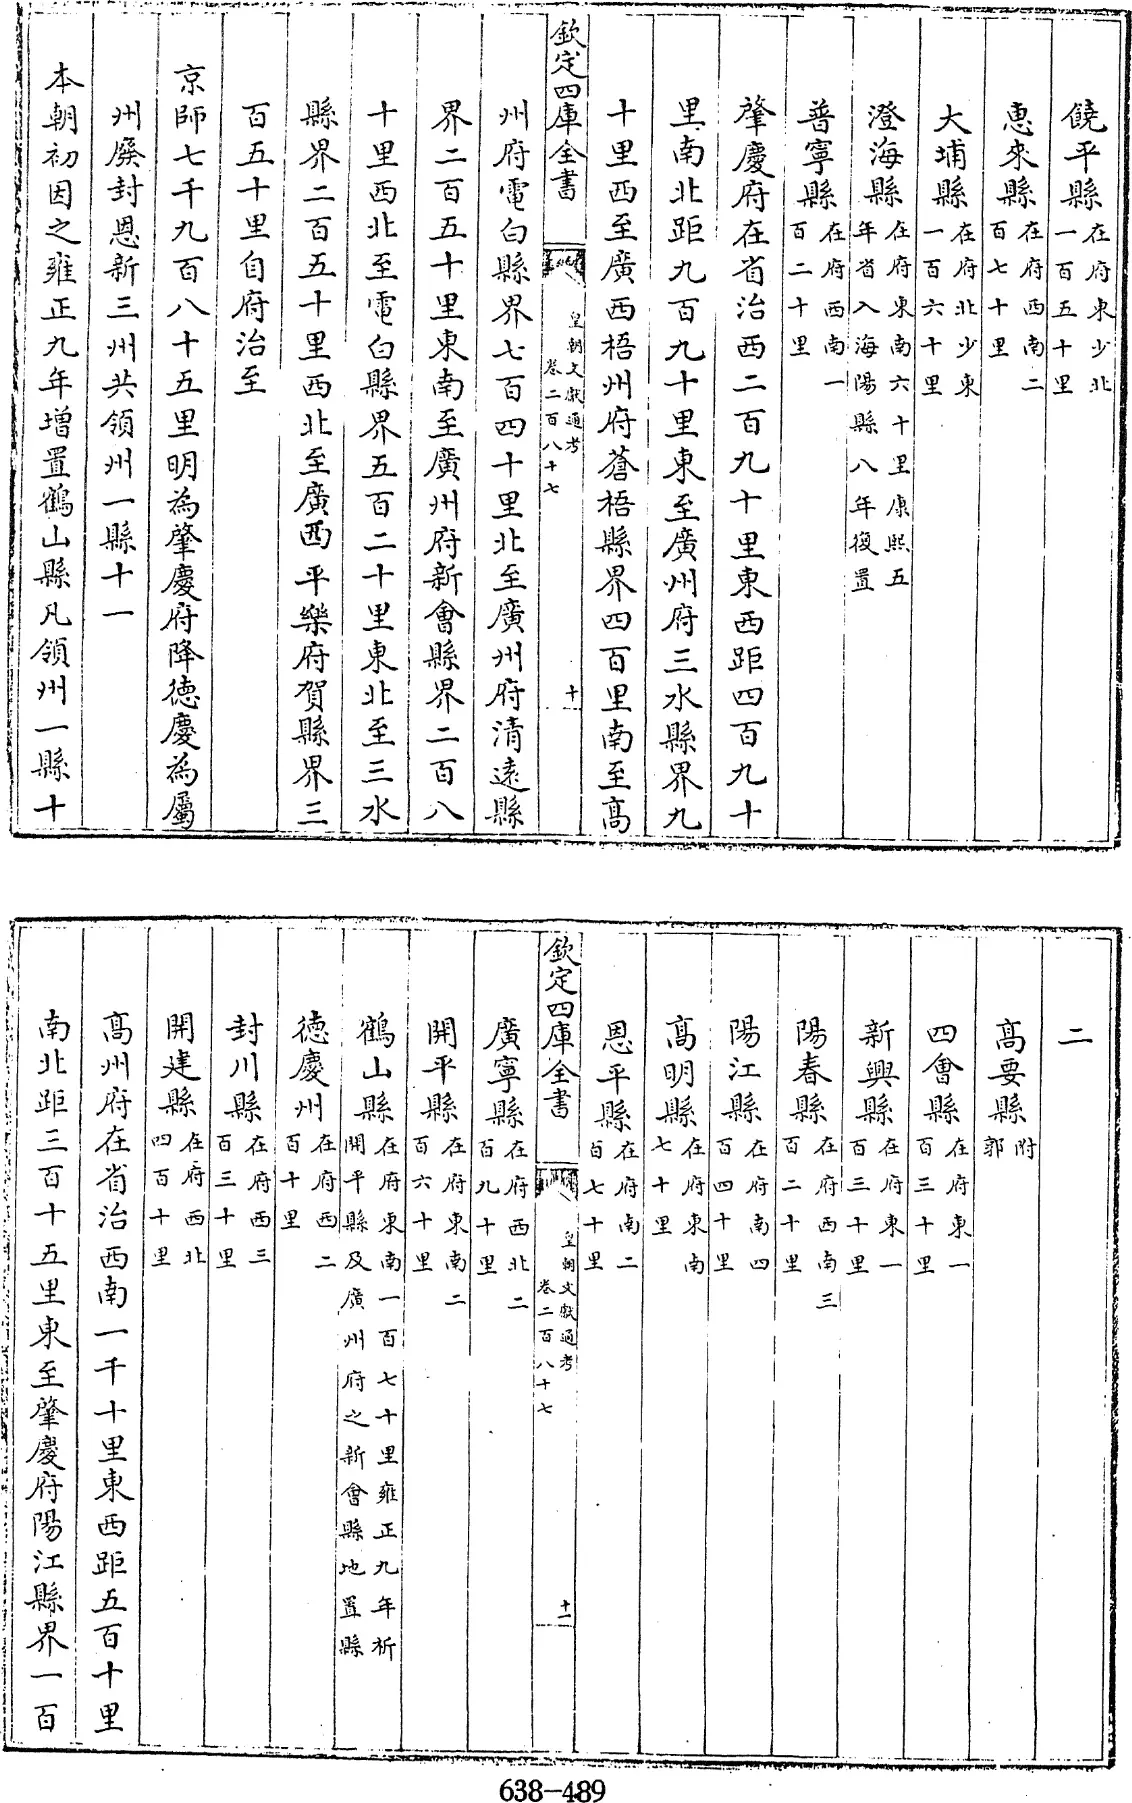 饒平縣在府東少北一百五十里
惠來縣在府西南二百七十里
大埔縣在府北少東一百六十里
澄海縣在府東南六十里康熙五年省入海陽縣八年復置
普寧縣在府西南一百二十里
肇慶府在省治西二百九十里東西距四百九十
里南北距九百九十里東至廣州府三水縣界九
十里西至廣西梧州府蒼梧縣界四百里南至高
欽定四庫全書
皇朝文獻通考
卷二百八十七
十
州府電白縣界七百四十里北至廣州府清遠縣
界二百五十里東南至廣州府新會縣界二百八
十里西北至電白縣界五百二十里東北至三水
縣界二百五十里西北至廣西平樂府賀縣界三
百五十里自府治至
京師七千九百八十五里明為肇慶府降德慶為屬
州廢封恩新三州共領州一縣十一
本朝初因之雍正九年增置鶴山縣凡領州一縣十
二
高要縣附郭
四會縣在府東一百三十里
新興縣在府東一百三十里
陽春縣在府西南三百二十里
陽江縣在府南四百四十里
高明縣在府東南七十里
恩平縣在府南二百七十里
欽定四庫全書
皇朝文獻通考
卷二百八十七
十一
廣寧縣在府西北二百九十里
開平縣在府東南二百六十里
鶴山縣在府東南一百七十里雍正九年析開平縣及廣州府之新會縣地置縣
德慶州在府西二百十里
封川縣在府西三百三十里
開建縣在府西北四百十里
高州府在省治西南一千十里東西距五百十里
南北距三百十五里東至肇慶府陽江縣界一百
638-489